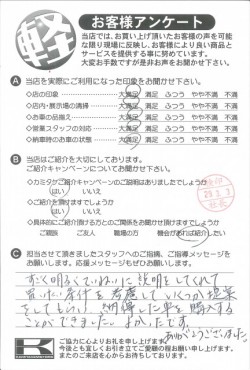 軽
お客様アンケート
当店では、お買い上げ頂いたお客様の声を可能
な限り現場に反映し、お客様により良い商品と
サービスを提供する事に努めています。
大変お手数ですが是非お声をお聞かせ下さい。
A 当店を実際にご利用になった印象をお聞かせ下さい。
◇店の印象 大満足 満足 ふつう やや不満 不満
◇店内・展示場の清掃 大満足 満足 ふつう やや不満 不満
◇お車の品揃え 大満足 満足 ふつう やや不満 不満
◇営業スタッフの対応 大満足 満足 ふつう やや不満 不満
◇納車時のお車の状態 大満足 満足 ふつう やや不満 不満
B 当店はご紹介を大切にしております。
ご紹介キャンペーンについてお聞かせ下さい。
◇カミタケご紹介キャンペーンのご説明はありましたでしょうか
はい いいえ
◇ご紹介を頂けますでしょうか
はい いいえ
◇具体的にご紹介頂ける方とのご関係をお聞かせ頂けますでしょうか
ご親族 ご友人 職場の方 機会があれば紹介したい
C 担当させて頂きましたスタッフへのご指摘、ご指導メッセージを
お願いします。応援メッセージもぜひお願いします。
すごく明るくていねいに説明をしてくれて
買いたい条件を考慮していくつか提案
をしてもらい、納得した車を購入する
ことができました。よかったです。
ありがとうございました。
K
ご協力に心よりお礼を申し上げます。
今後とも宜しくお引き立てご愛顧の程お願い申し上げます。
またのご来店を心からお待ちしております。